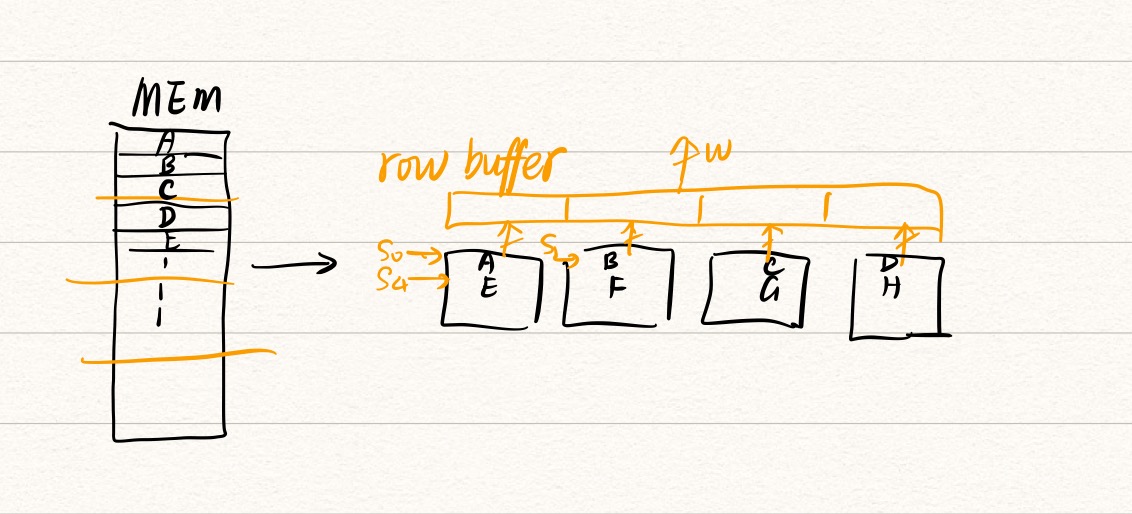 MEM
A
B
C
D
E
row buffer
W
S0
S4
A
E
B
F
C
G
D
H